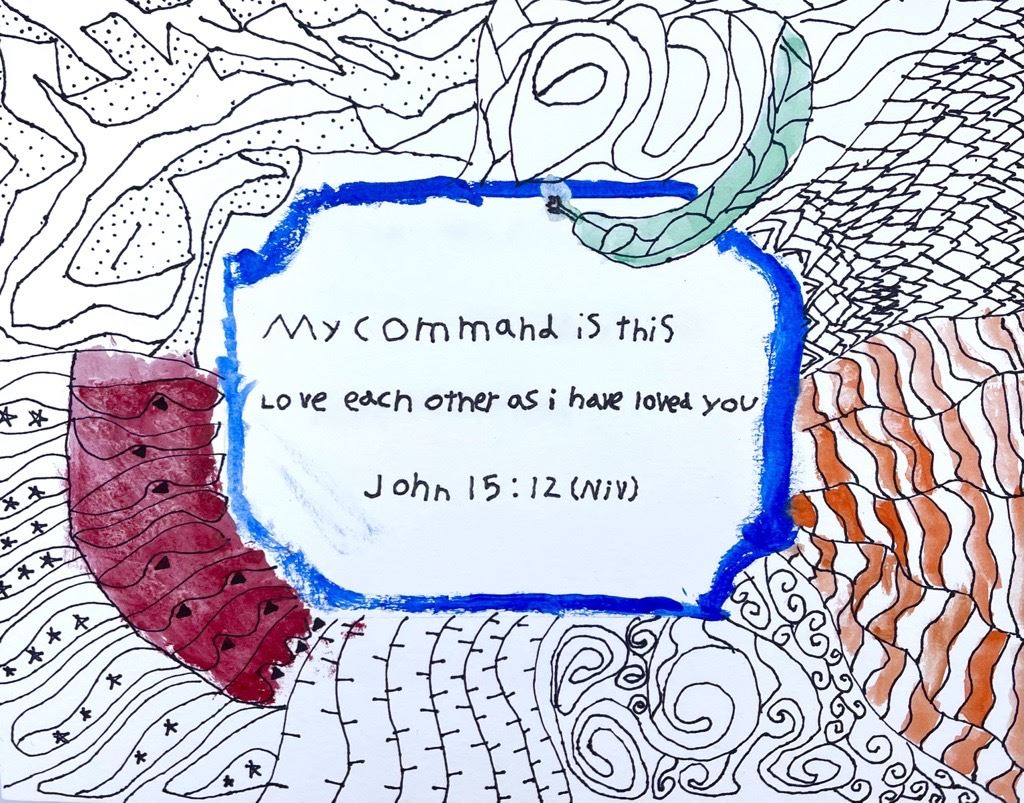 My command is this
Love each other as i have loved you
John 15:12 (NiV)